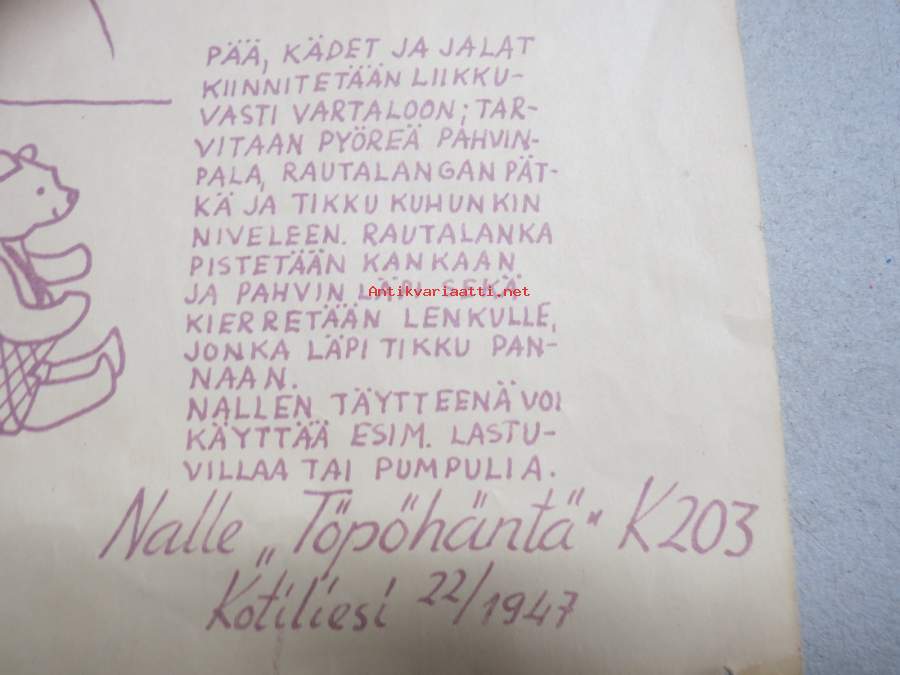 PÄÄ, KÄDET JA JALAT
KIINNITETÄÄN LIIKKU-
VASTI VARTALOON; TAR-
VITAAN PYÖREÄ PAHVIN-
PALA, RAUTALANGAN PÄT-
KÄ JA TIKKU KUHUNKIN
NIVELEEN. RAUTALANKA
PISTETÄÄN KANKAAN
JA PAHVIN LÄPI SEKÄ
Antikvariaatti.net
KIERRETÄÄN LENKULLE,
JONKA LÄPI TIKKU PAN-
NAAN.
NALLEN TÄYTTEENÄ VOI
KÄYTTÄÄ ESIM. LASTU-
VILLAA TAI PUMPULIA.
Nalle „Töpöhäntä" K203
Kotiliesi 22/1947